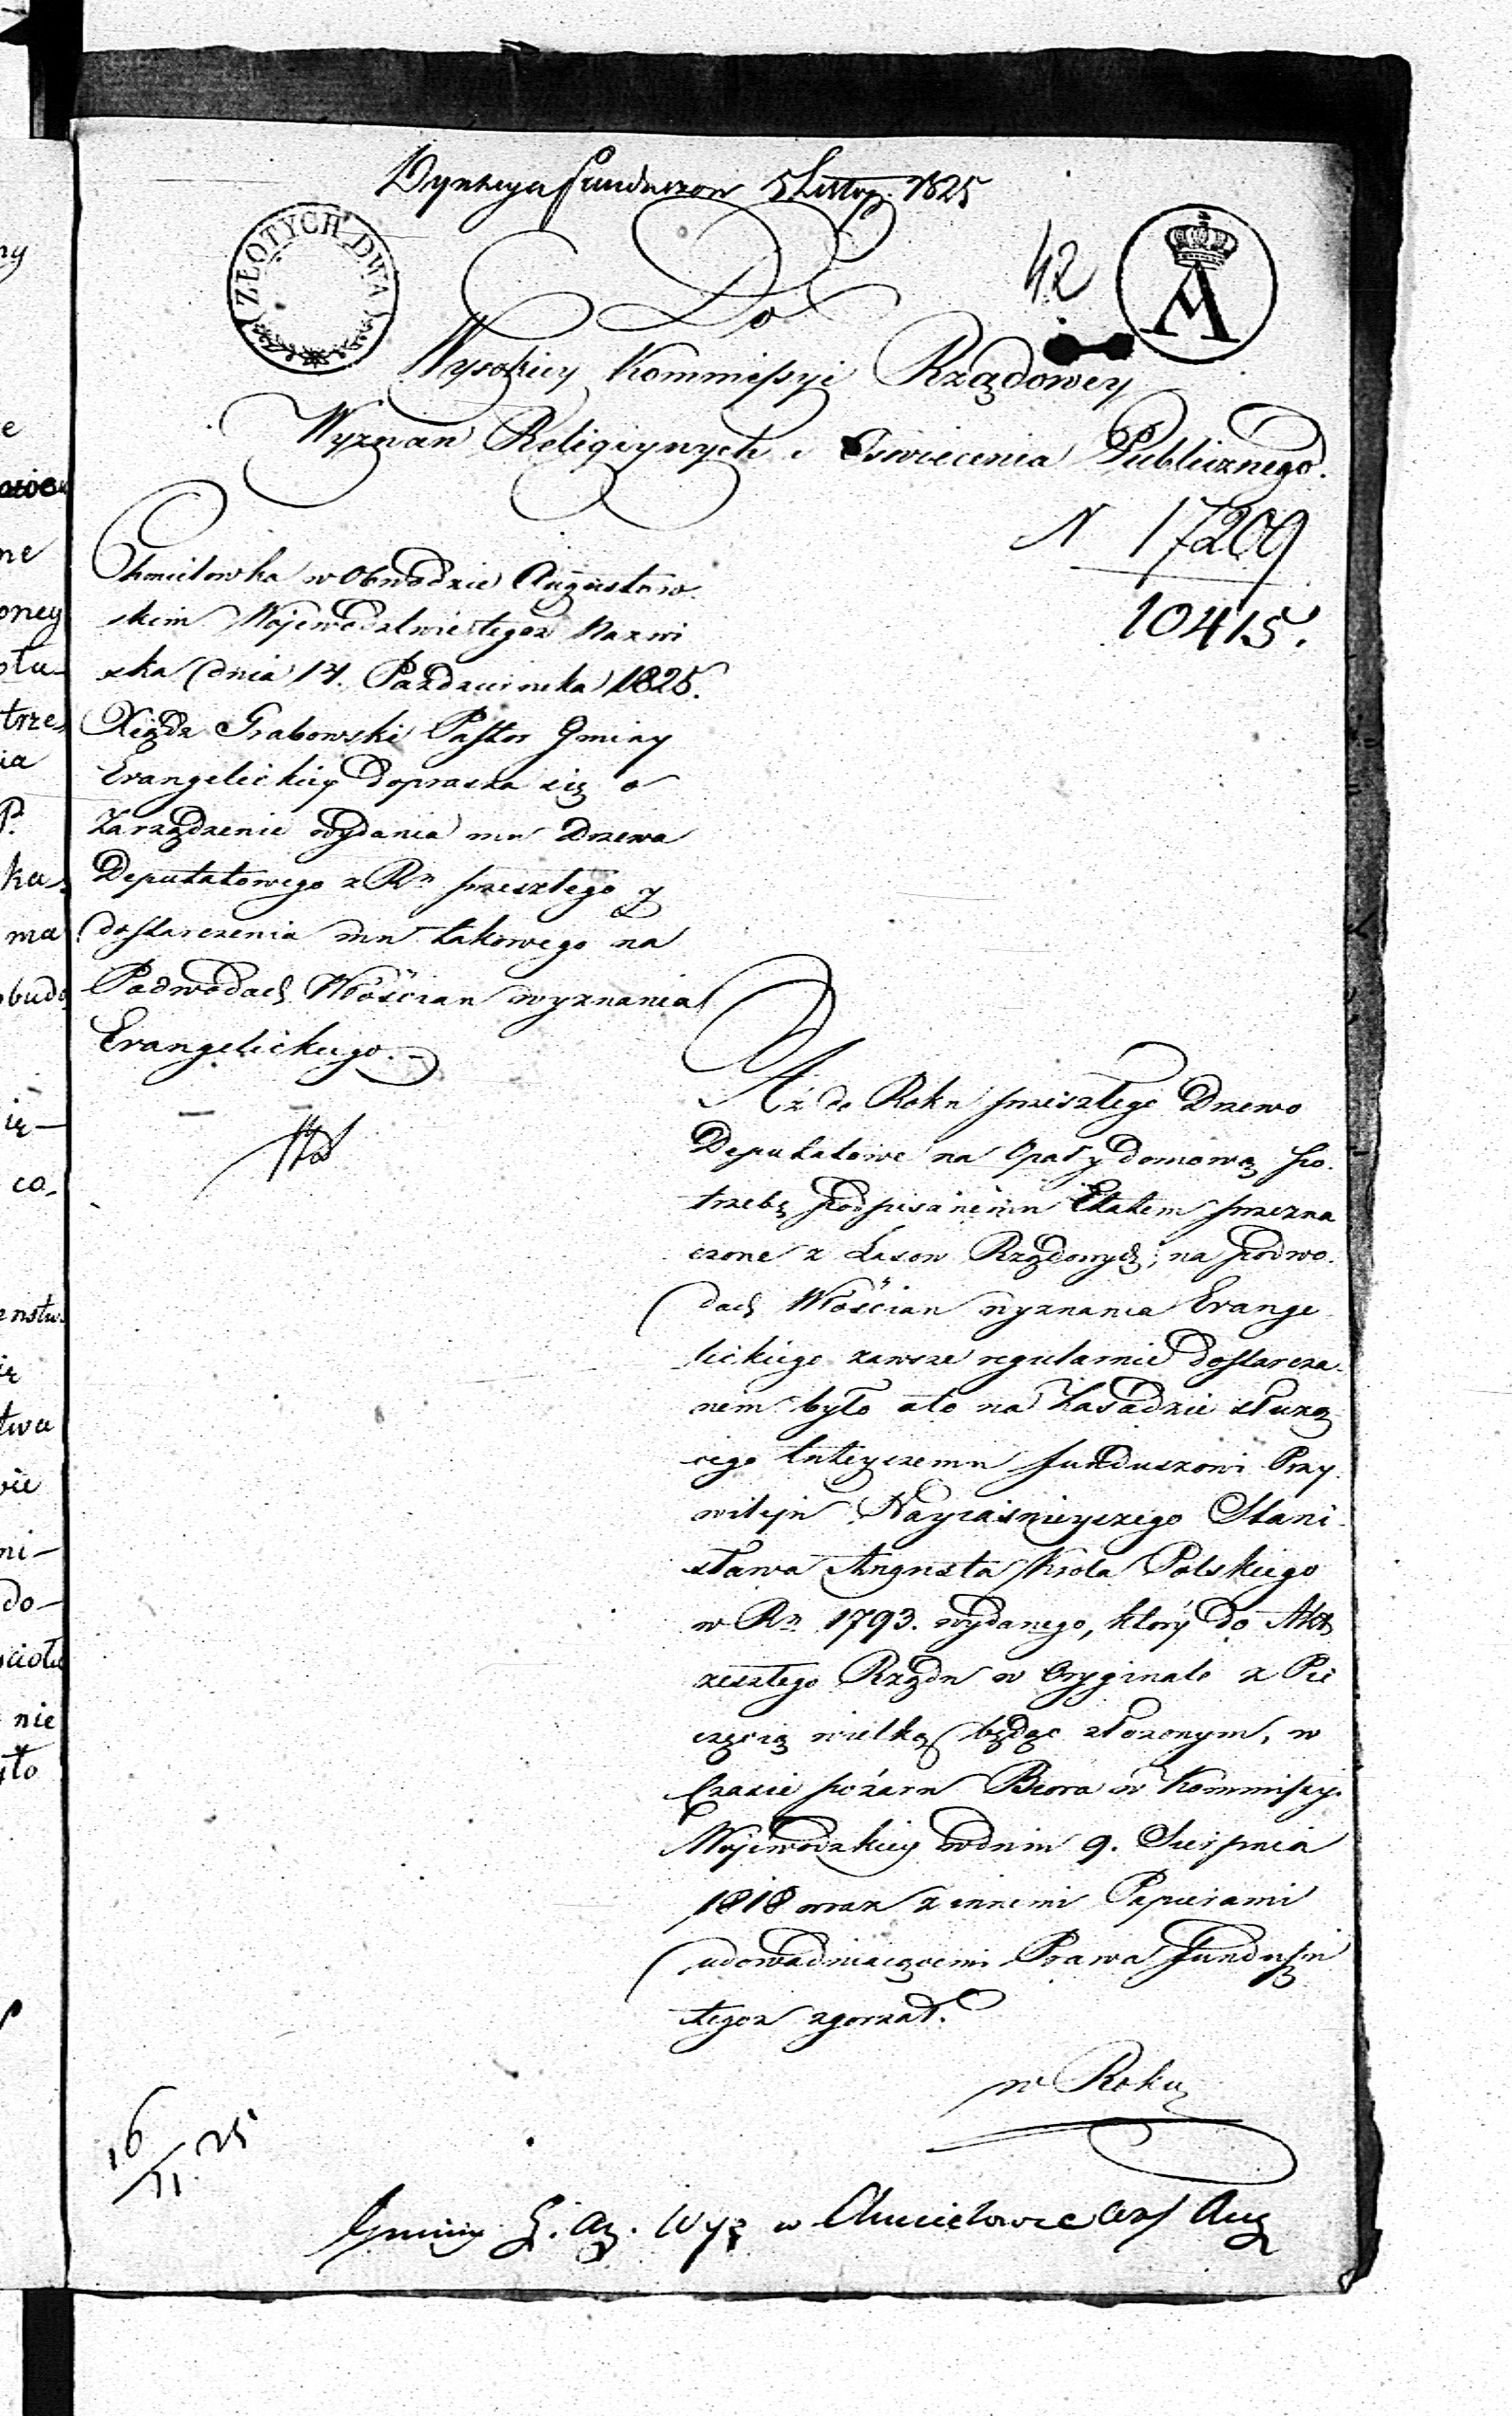 Dyrekcya Funduszow 5 Listop. 1825
ZŁOTYCH DWA
42
A
Do
Wysokiey Kommissyi Rządowey
Wyznan Religiynych i Oswiecenia Publicznego.
N 17209
10415.
Chmielowka w Obwodzie Augustow
skim Wojewodztwie tegoż Nazwi
ska dnia 14. Pazdziernika 1825.
Xiądz Grabowski Pastor Gminy
Evangelickiey doprasza się o
Zarządzenie wydania mu Drzewa
Deputatowego z Ru przeszłego y
dostarczenia mu takowego na
Podwodach Włościan wyznania
Evangelickiego.
Aż do Roku przeszłego Drzewo
Deputatowe na Opał y domową po-
trzebę podpisanemu Etatem przezna
czone z Lasow Rządowych; na podwo-
dach Włościan wyznania Evange
lickiego zawsze regularnie dostarcza-
nem było a to na Zasadzie służą
cego tuteyszemu funduszowi Przy
wileju Nayiasnieyszego Stani-
sława Augusta Krola Polskiego
w Ru 1793. wydanego, który do Akt
zeszłego Rządu w Oryginale z Pie
częcią wielką będąc złożonym, w
Czasie pożaru Biora w Kommissyi
Wojewodzkiey w dniu 9. Sierpnia
1818 wraz z innemi Papierami
udowadniaiącemi Prawa Funduszu
tegoż zgorzał.
w Roku
16/11 25
Gminy E. Au. Wyz w Chmielowce Ws Aug